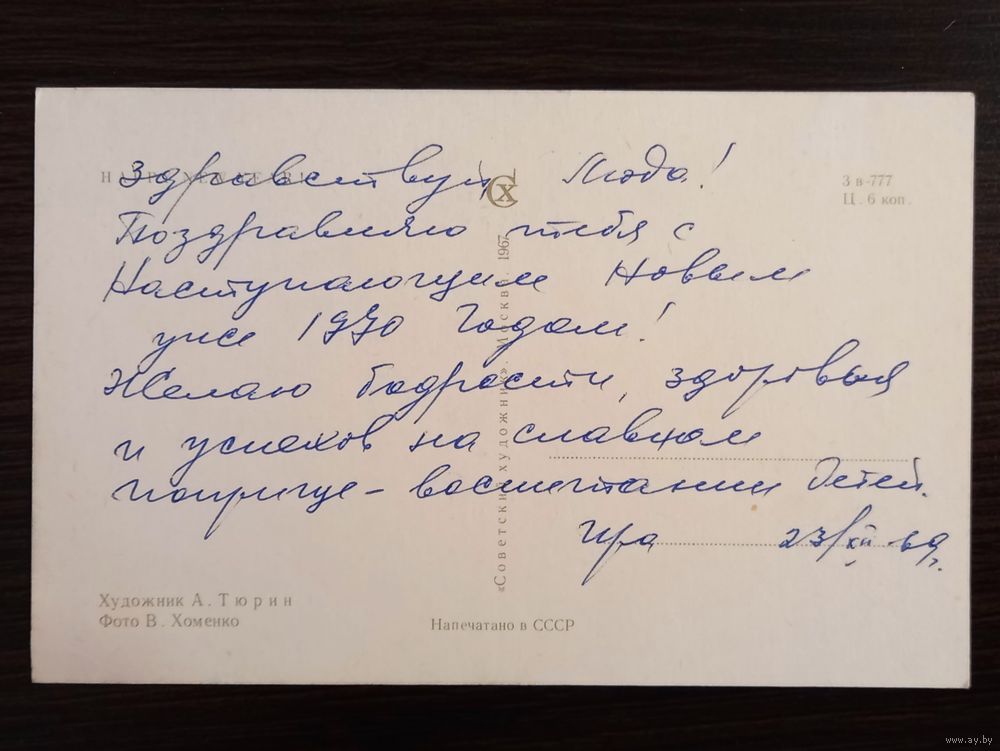 HAPPY NEW YEAR!
Здравствуй, Люда!
СХ
З в-777
Ц. 6 коп.
Поздравляю тебя с
Наступающим Новым
уже 1970 Годом!
Желаю бодрости, здоровья
и успехов на славном
поприще – воспитании детей.
Ира 23/XII-69г.
«Советский художник». Москва. 1967
Художник А. Тюрин
Фото В. Хоменко
Напечатано в СССР
www.ay.by